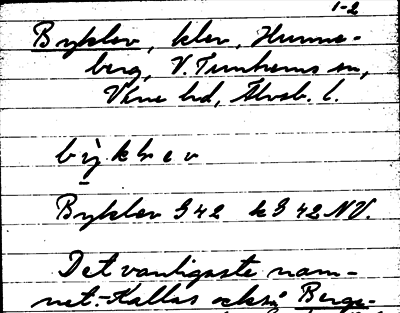 1-2
Byklev, klev, Hunne-
berg, V. Tunhems sn,
Väne hd, Älvsb. l.
bỳklev
Byklev G42 kG 42 NV.
Det vanligaste nam-
net. - Kallas också Bergs-